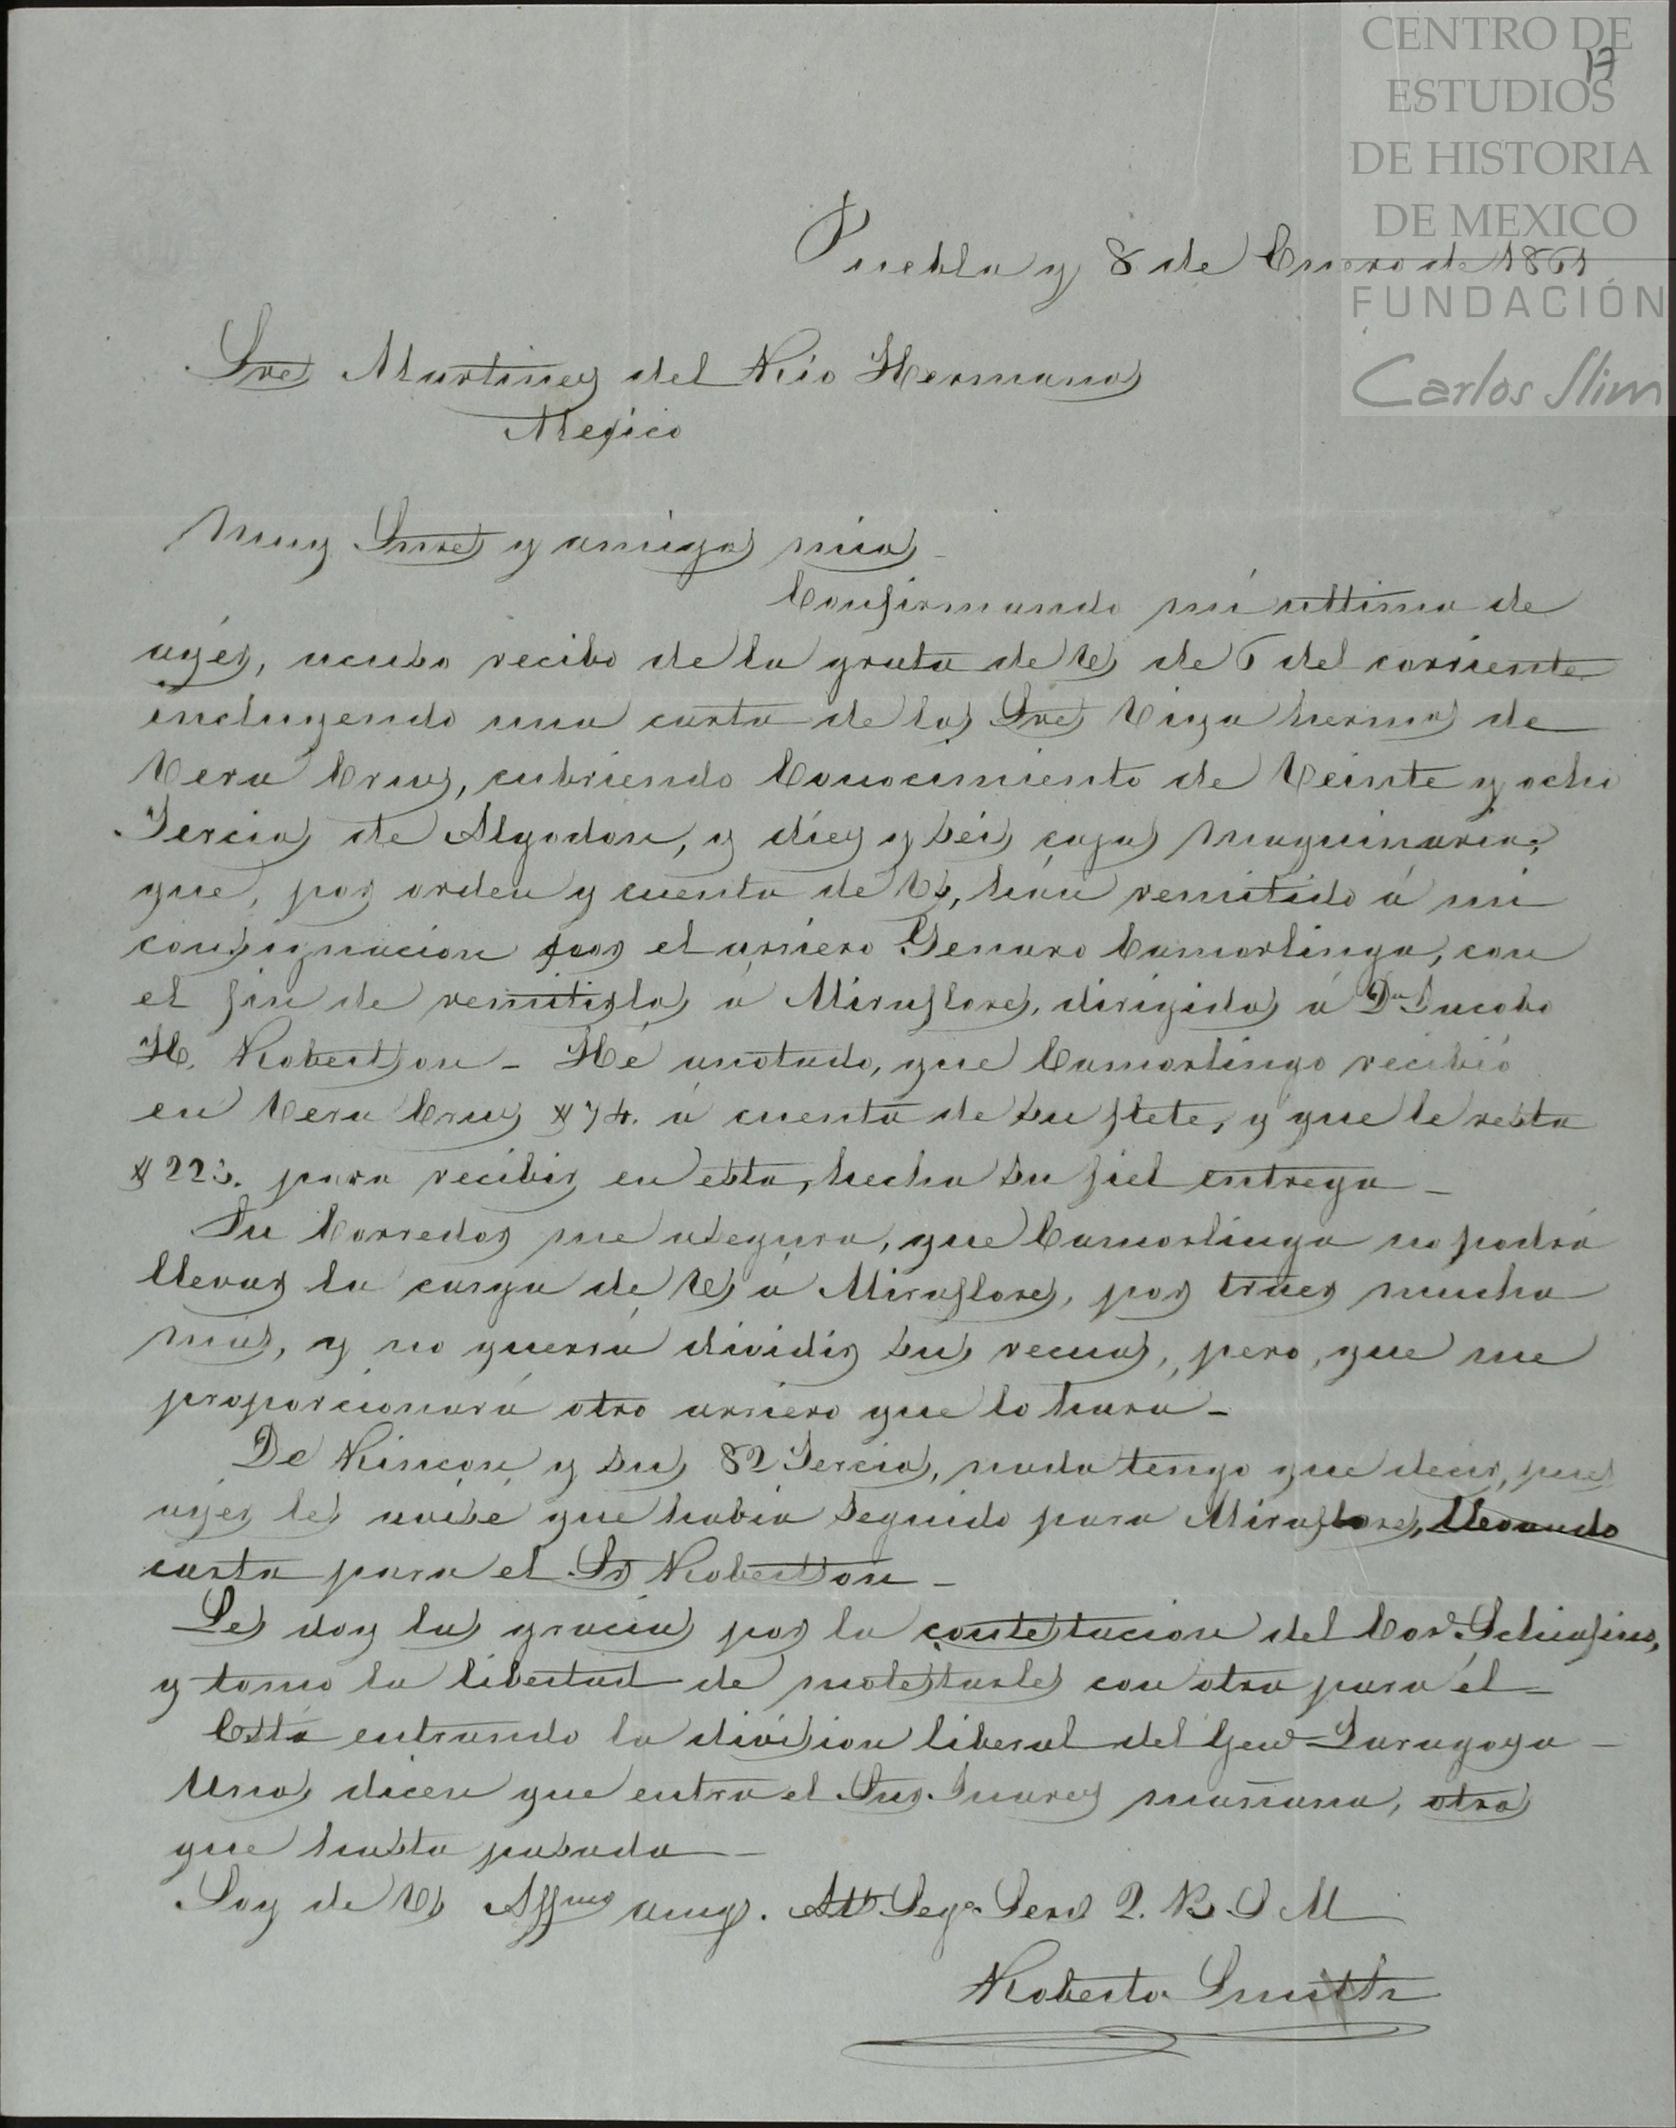 CENTRO DE
ESTUDIOS
DE HISTORIA
DE MEXICO
FUNDACIÓN
Carlos Slim
17
Puebla y 8 de Enero de 1861
Sres Martinez del Rio Hermanos
Mejico
Muy Sures y amigos mios -
Confirmando mi ultima de
ayer, acuso recibo de la grata de Vs de 6 del corriente
incluyendo una carta de los Sres Viya hermos de
Vera Cruz, cubriendo Conocimiento de Veinte y ocho
Tercios de Algodon, y diez y seis cajas Maquinaria,
que, por orden y cuenta de Vs, hán remitido á mi
consignacion por el arriero Genaro Camorlinga, con
el fin de remitirlos á Miraflores, dirigidos á Dn Jacobo
H. Robertson - Hé anotado, que Camorlingo recibió
en Vera Cruz $74. á cuenta de su flete, y que le resta
$223. para recibir en esta, hecha su fiel entrega -
Su Corredor me asegura, que Camorlinga no podrá
llevar la carga de Vs á Miraflores, por traer mucha
mas, y no querrá dividir sus recuas, pero, que me
proporcionará otro arriero que lo hará -
De Rincon y sus 82 Tercios, nada tengo que decir, pues
ayer les avisé que habia seguido para Miraflores, llevando
carta para el Sr Robertson -
Les doy las gracias por la contestacion del Corl Schiafino,
y tomo la libertad de molestarles con otra para él -
Está entrando la division liberal del Genl Zaragoza -
Unos dicen que entra el Sor. Juarez mañana, otros
que hasta pasado -
Soy de Vs Affmo amigo. Atto Sego Servr Q. B. S M
Roberto Smith